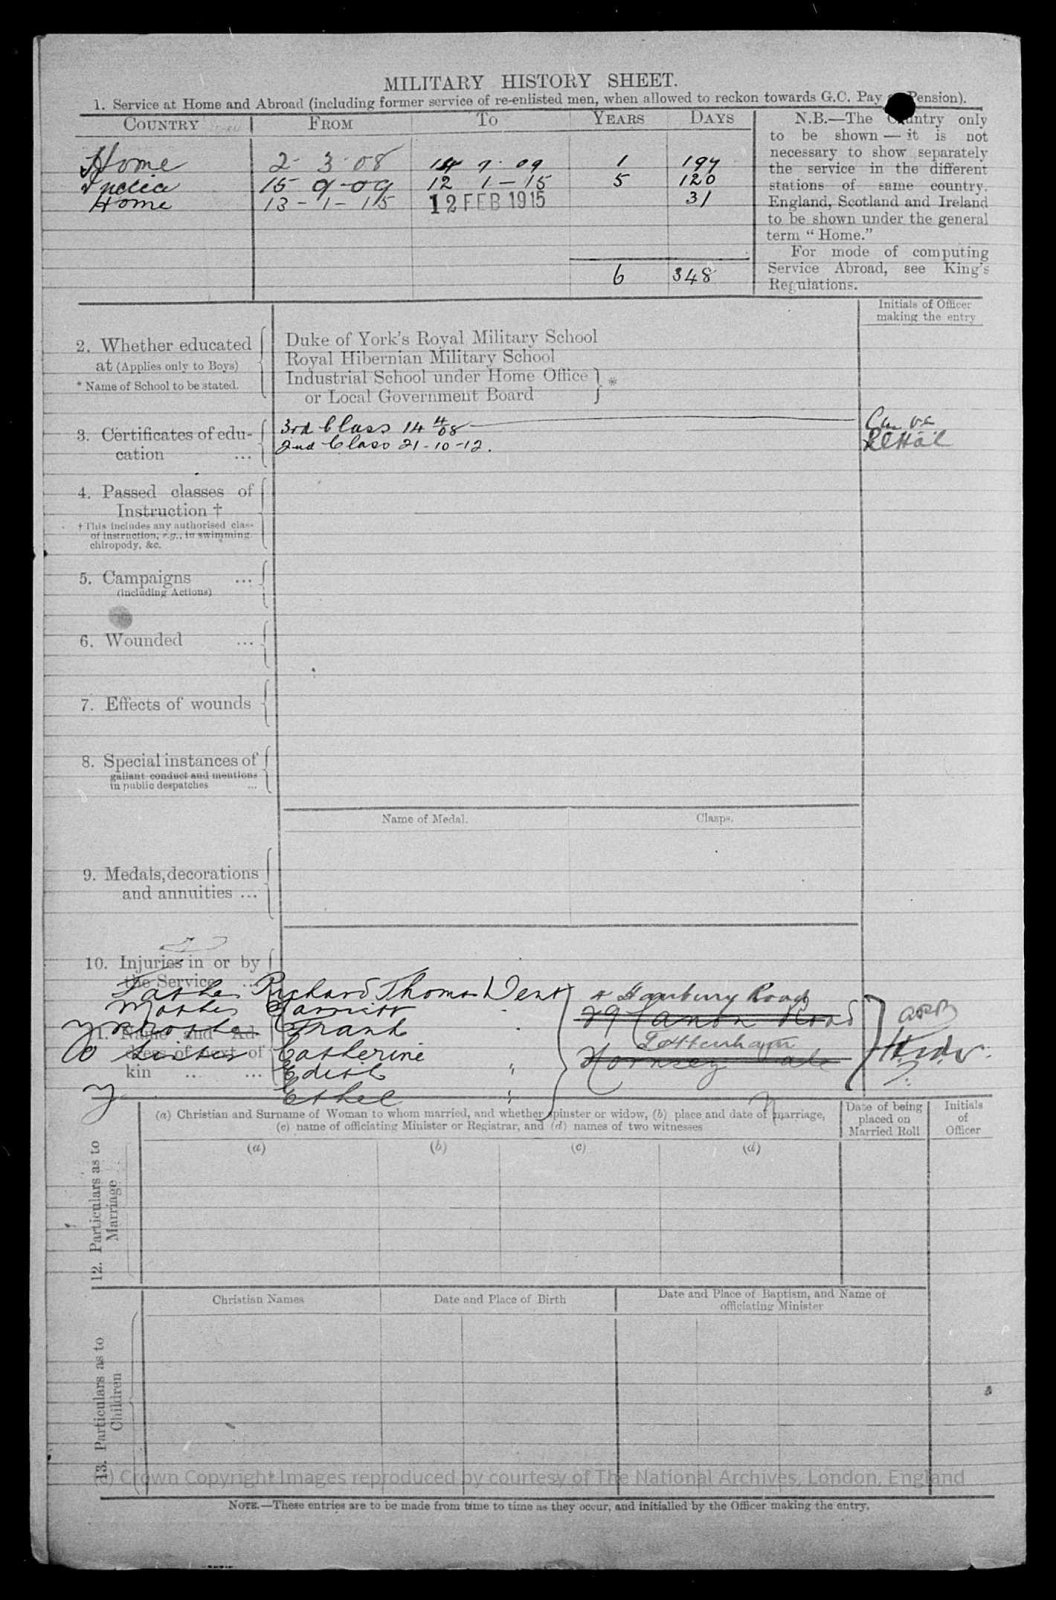 MILITARY HISTORY SHEET.
1. Service at Home and Abroad (including former service of re-enlisted men, when allowed to reckon towards G.C. Pay Pension).
COUNTRY FROM To YEARS DAYS
Home 2 - 3 - 08 14 9 - 09 1 197
India 15 9-09 12 1 - 15 5 120
Home 13 - 1 - 15 12 FEB 1915 31
6 348
N.B.—The Country only
to be shown — it is not
necessary to show separately
the service in the different
stations of same country.
England, Scotland and Ireland
to be shown under the general
term "Home."
For mode of computing
Service Abroad, see King's
Regulations.
Initials of Officer
making the entry
2. Whether educated
at (Applies only to Boys)
* Name of School to be stated.
Duke of York's Royal Military School
Royal Hibernian Military School
Industrial School under Home Office } *
or Local Government Board
3. Certificates of edu-
cation ...
3rd Class 14 4/08
2nd Class 21-10-12.
4. Passed classes of
Instruction †
† This includes any authorised class
of instruction, e.g., in swimming,
chiropody, &c.
5. Campaigns ...
(including Actions)
6. Wounded ...
7. Effects of wounds
8. Special instances of
gallant conduct and mentions
in public despatches ...
Name of Medal. Clasps.
9. Medals, decorations
and annuities ...
10. Injuries in or by
the Service
Father Richard Thomas Dent
Mother Harriett
Brother Frank
Sister Catherine
Edith "
Ethel "
4 Hanbury Road
Tottenham
11. Name and Ad-
dress of next of
kin
(a) Christian and Surname of Woman to whom married, and whether spinster or widow, (b) place and date of marriage,
(c) name of officiating Minister or Registrar, and (d) names of two witnesses
Date of being
placed on
Married Roll
Initials
of
Officer
(a) (b) (c) (d)
12. Particulars as to
Marriage
Christian Names Date and Place of Birth Date and Place of Baptism, and Name of
officiating Minister
13. Particulars as to
Children
(c) Crown Copyright Images reproduced by courtesy of The National Archives, London, England
NOTE.—These entries are to be made from time to time as they occur, and initialled by the Officer making the entry.